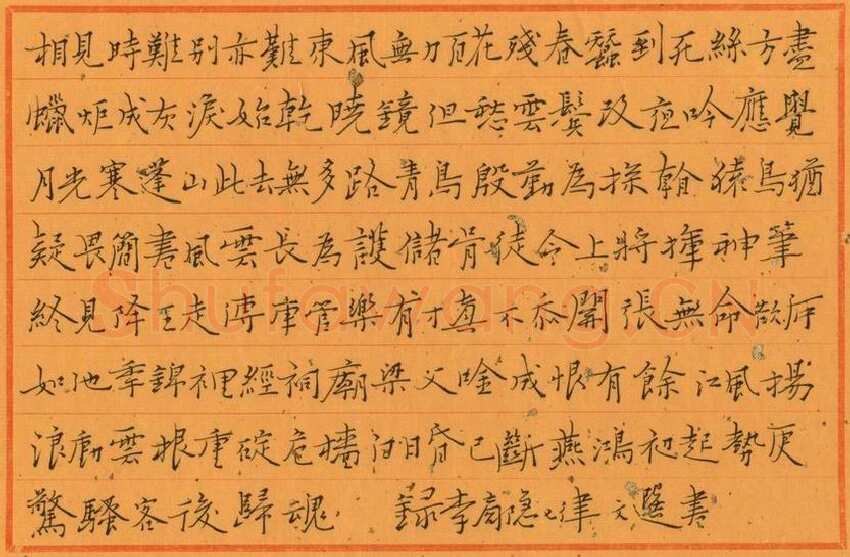 相見時難別亦難東風無力百花殘春蠶到死絲方盡
蠟炬成灰淚始乾曉鏡但愁雲鬢改夜吟應覺
月光寒蓬山此去無多路青鳥殷勤為探看猿鳥猶
疑畏簡書風雲長為護儲胥徒令上將揮神筆
終見降王走傳車管樂有才真不忝關張無命欲何
如他年錦裡經祠廟梁父吟成恨有餘江風揚
浪動雲根重碇危檣白日昏已斷燕鴻初起勢更
驚騷客後歸魂 錄李商隱七律 文選書
Shufawang.CN